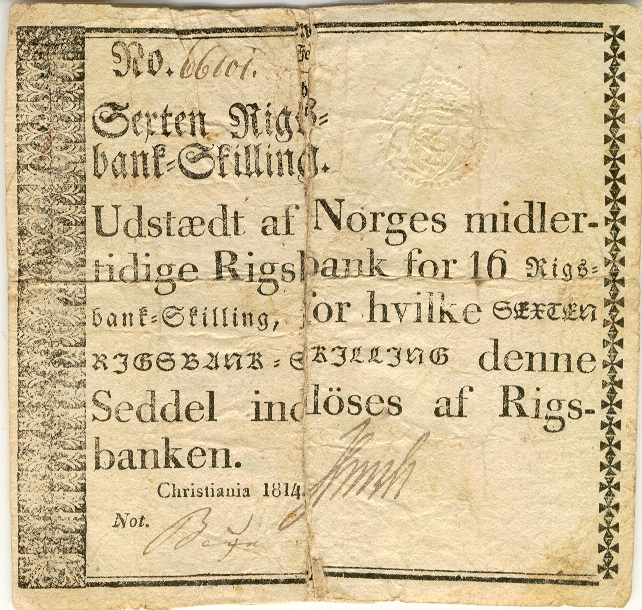 No. 66101.
Sexten Rigs-
bank-Skilling.
Udstædt af Norges midler-
tidige Rigsbank for 16 Rigs-
bank-Skilling, for hvilke SEXTEN
RIGSBANK-SKILLING denne
Seddel indlöses af Rigs-
banken.
Christiania 1814.
Not.